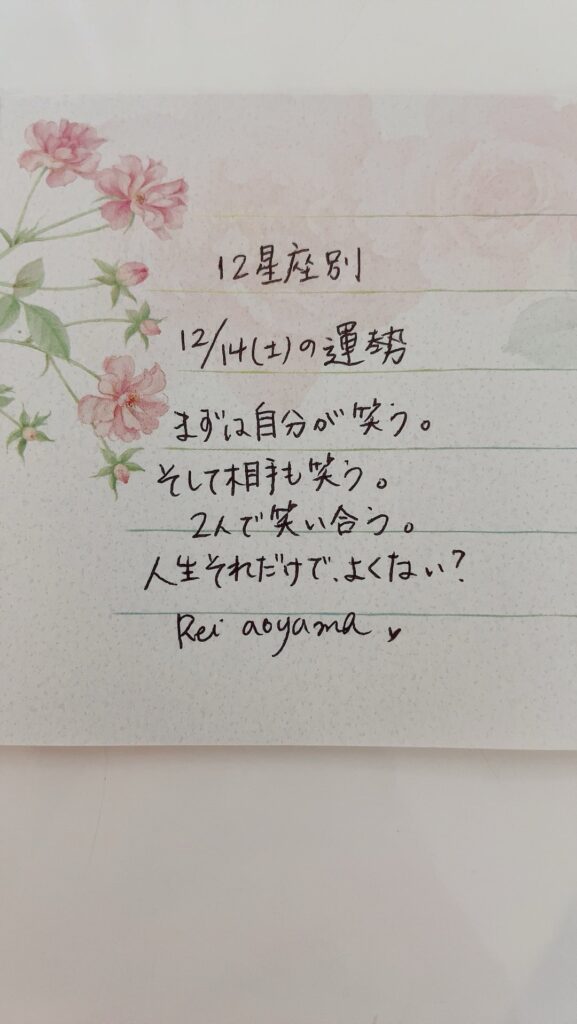 12星座別
12/14(土)の運勢
まずは自分が笑う。
そして相手も笑う。
2人で笑い合う。
人生それだけで、よくない?
Rei aoyama